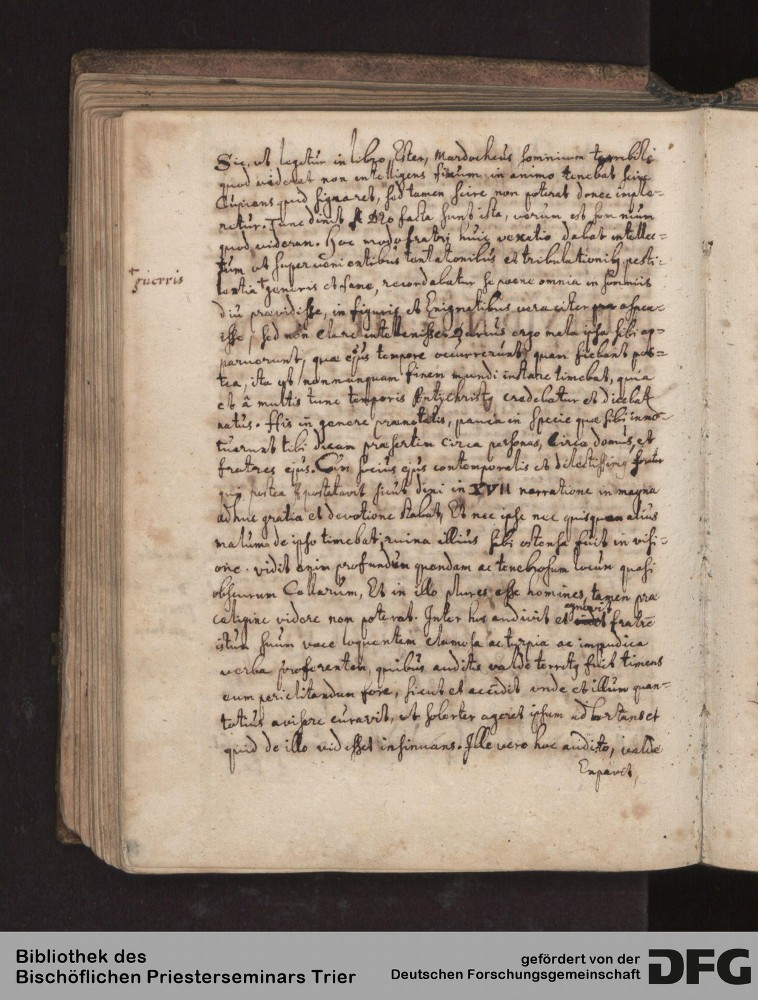 Sic, ut legitur in libro Ester, Mardocheus somnium terribile
quod viderat non intelligens fixum in animo tenebat scire
Cupiens quid signaret, sed tamen scire non poterat donec imple-
retur. Tunc dixit A Deo facta sunt ista, verum est somnium
quod videram. Hoc modo fratri huic vexatio dabat intellec-
tum ut supervenientibus tentationibus et tribulationibus pesti-
lentia generis et fame, recordabatur se pene omnia in somniis
†guerris
diu praevidisse, in figuris et Enigmatibus veraciter aspex-
isse, sed non clare intellexisse. ergo mala ipsa sibi ap-
paruerunt, quae ejus tempore occurrerunt, quam fiebant pos-
tea, ita ut nonnunquam finem mundi instare timebat, quia
et â multis tunc temporis Antychristus credebatur et dicebat
natus. His in genere praenotatis, pauca in specie quae sibi inno-
tuerunt tibi dicam praesertim circa personas, circa domus, et
fratres ejus. Cum socius ejus contemporalis et dilectissimus frater
qui postea apostatavit sicut dixi in XVII narratione in magna
adhuc gratia et devotione stabat, Et nec ipse nec quisquam alius
malum de ipso timebat, ruina illius sibi ostensa fuit in visi-
one. vidit enim profundum quendam ac tenebrosum locum quasi
obscurum Cellarium, Et in illo plures esse homines, tamen prae
caligine videre non poterat. Inter hos audivit et agnovit fratre
istum suum voce loquentem clamosa ac turpia ac impudica
verba proferentem, quibus auditis valde territus fuit timens
eum periclitandum fore, sicut et accidit unde et illum quan-
totius avisare curavit, ut solerter ageret ipsum adhortans et
quid de illo vidisset insinuans. Ille vero hoc audito, valde
Expavit,
Bibliothek des
Bischöflichen Priesterseminars Trier
gefördert von der
Deutschen Forschungsgemeinschaft
DFG